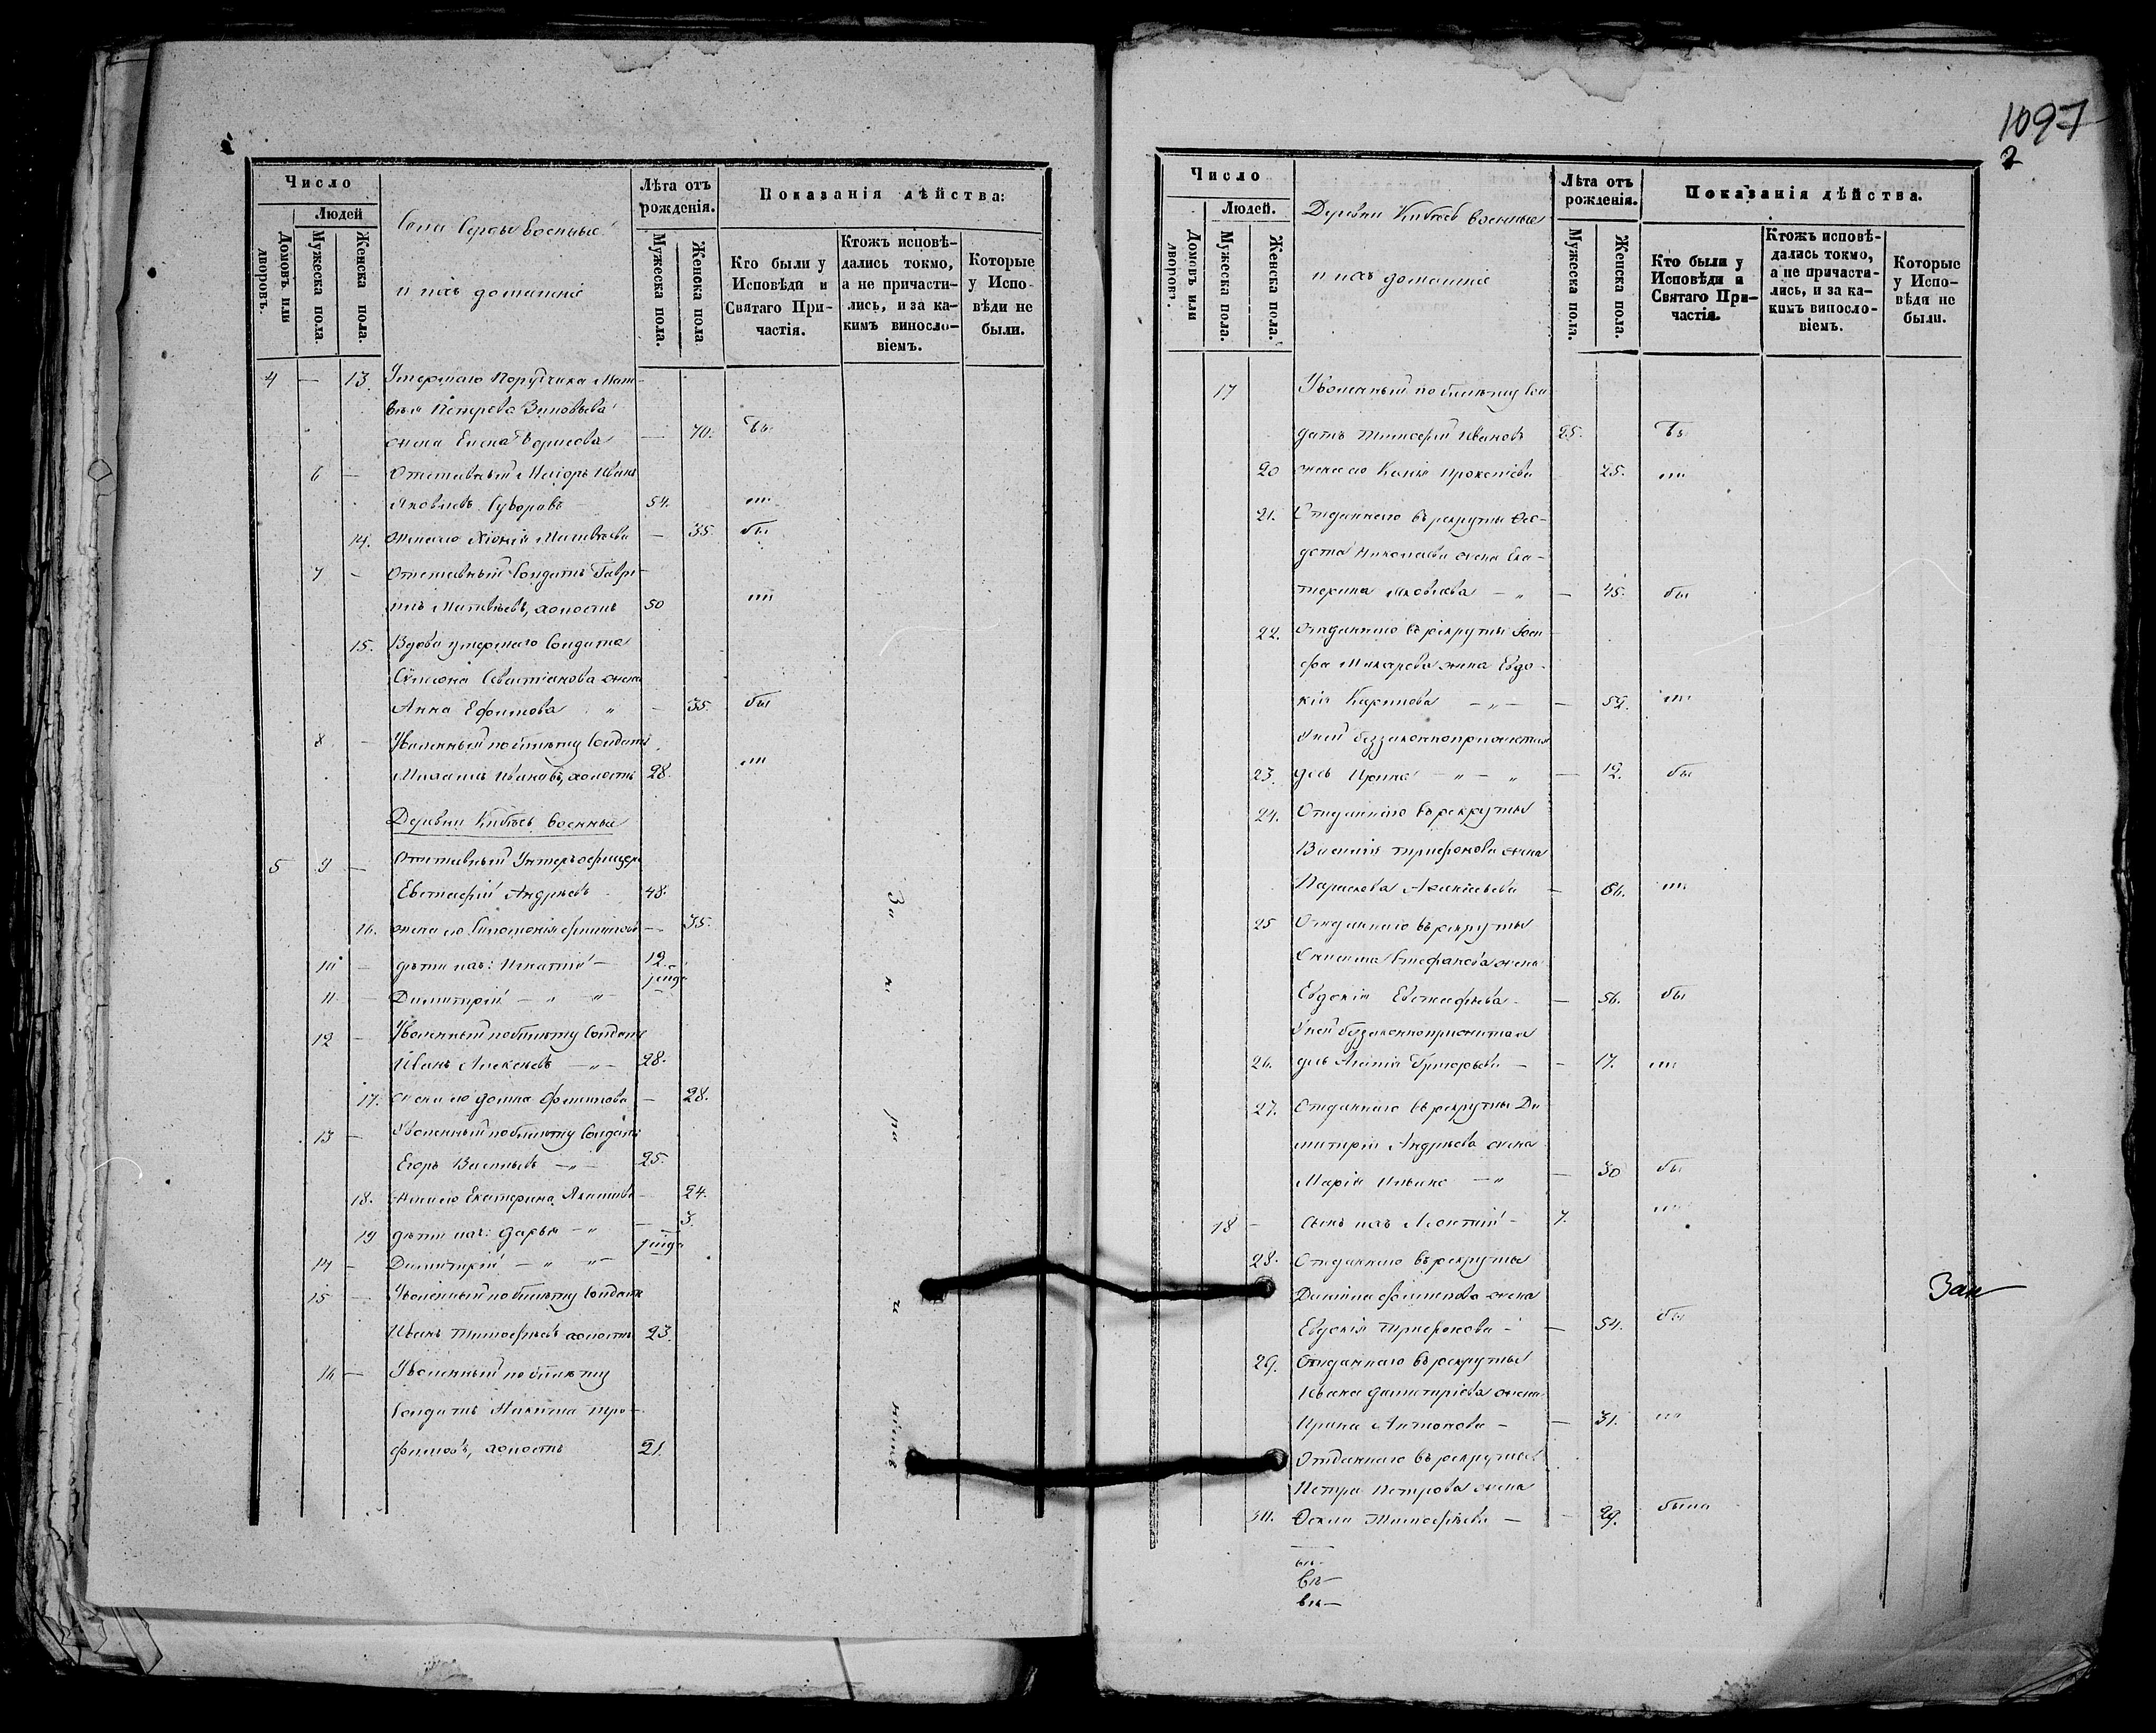 Число
Людей
Домовъ или дворовъ.
Мужеска пола.
Женска пола.
Села военные
и ихъ домашніе
Лѣта отъ рожденія.
Мужеска пола.
Женска пола
Показанія дѣйства:
Кто были у Исповѣди и Святаго Причастія.
Ктожъ исповѣдались токмо, а не причастились, и за какимъ винословіемъ.
Которые у Исповѣди не были.
4 — 13. Умершаго Поручика Мат-
вѣя Петрова Зиновьева
жена Елена Борисова — 70. бы
6 — Отставный Маіоръ Иванъ
Яковлевъ Суворовъ 54. —
14. жена его Хіонія Матвѣева — 35. бы
7 — Отставный Солдатъ Гаврі-
илъ Матвѣевъ, холостъ 50
15. Вдова умершаго Солдата
Сѵмеона Севастіанова жена
Анна Ефимова „ — 35. бы
8 — Уволенный по билету Солдатъ
Михаилъ Ивановъ, холостъ 28.
Деревни военные
5 9 — Отставный Унтеръ офицеръ
Евстафій Андреевъ 48.
16. жена его Соломонія Филиппова — 35.
10 — дѣти ихъ: Игнатій — 12.
11. — Димитрій — „ — „ —
12 — Уволенный по билету Солдатъ
Иванъ Алексѣевъ — „ — 28.
17. жена его Домна Филиппова — 28.
13 — Уволенный по билету Солдатъ
Егоръ Васильевъ — „ — 25.
18. жена его Екатерина — 24.
19 дѣти ихъ: Дарья — „ — 3.
14 — Димитрій — „ — „ —
15 — Уволенный по билету Солдатъ
Иванъ Тимофѣевъ холостъ 23.
16 — Уволенный по билету
Солдатъ Никита Тро-
фимовъ, холостъ 21.
1097
2
Число
Людей.
Домовъ или дворовъ.
Мужеска пола.
Женска пола.
Деревни военные
и ихъ домашніе
Лѣта отъ рожденія.
Мужеска пола.
Женска пола.
Показанія дѣйства.
Кто были у Исповѣди и Святаго Причастія.
Ктожъ исповѣдались токмо, а не причастились, и за какимъ винословіемъ.
Которые у Исповѣди не были.
17 Уволенный по билету Сол-
датъ Тимофей Ивановъ 25. бы
20 жена его Прокопіева 25.
21. Отданнаго въ рекруты Ѳео-
дота Николаева жена Ека-
терина Яковлева — „ — 45. бы
22. Отданнаго въ рекруты Іоси-
фа Макарова жена Евдо-
кія Карпова — „ — — 52.
У ней беззаконноприжитая
23. дочь Ирина — „ — „ — 12. бы
24. Отданнаго въ рекруты
Василія Трифонова жена
Параскева Аѳанасьева — 66.
25 Отданнаго въ рекруты
Стефанова жена
Евдокія Евстафьева — — 56. бы
У ней беззаконноприжитая
26. дочь Григорьева — — 17.
27. Отданнаго въ рекруты Ди-
митрія Андреева жена
Марія Ильина — „ — 30 бы
18 — сынъ ихъ Леонтій — 7.
28. Отданнаго въ рекруты
Филиппова жена
Евдокія Трифонова — — 54. бы
29. Отданнаго въ рекруты
Ивана Димитріева жена
Ирина Антонова — — 31.
Отданнаго въ рекруты
Петра Петрова жена
30. Ѳекла Тимофѣева — — 29. была